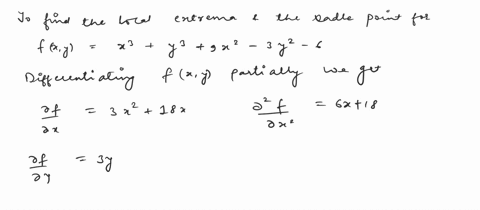 To find the local extrema & the Sadle point for
f(x,y) = x³ + y³ + 9x² - 3y² - 6
Differentiating f(x,y) partially we get
∂f/∂x = 3x² + 18x ∂²f/∂x² = 6x+18
∂f/∂y = 3y